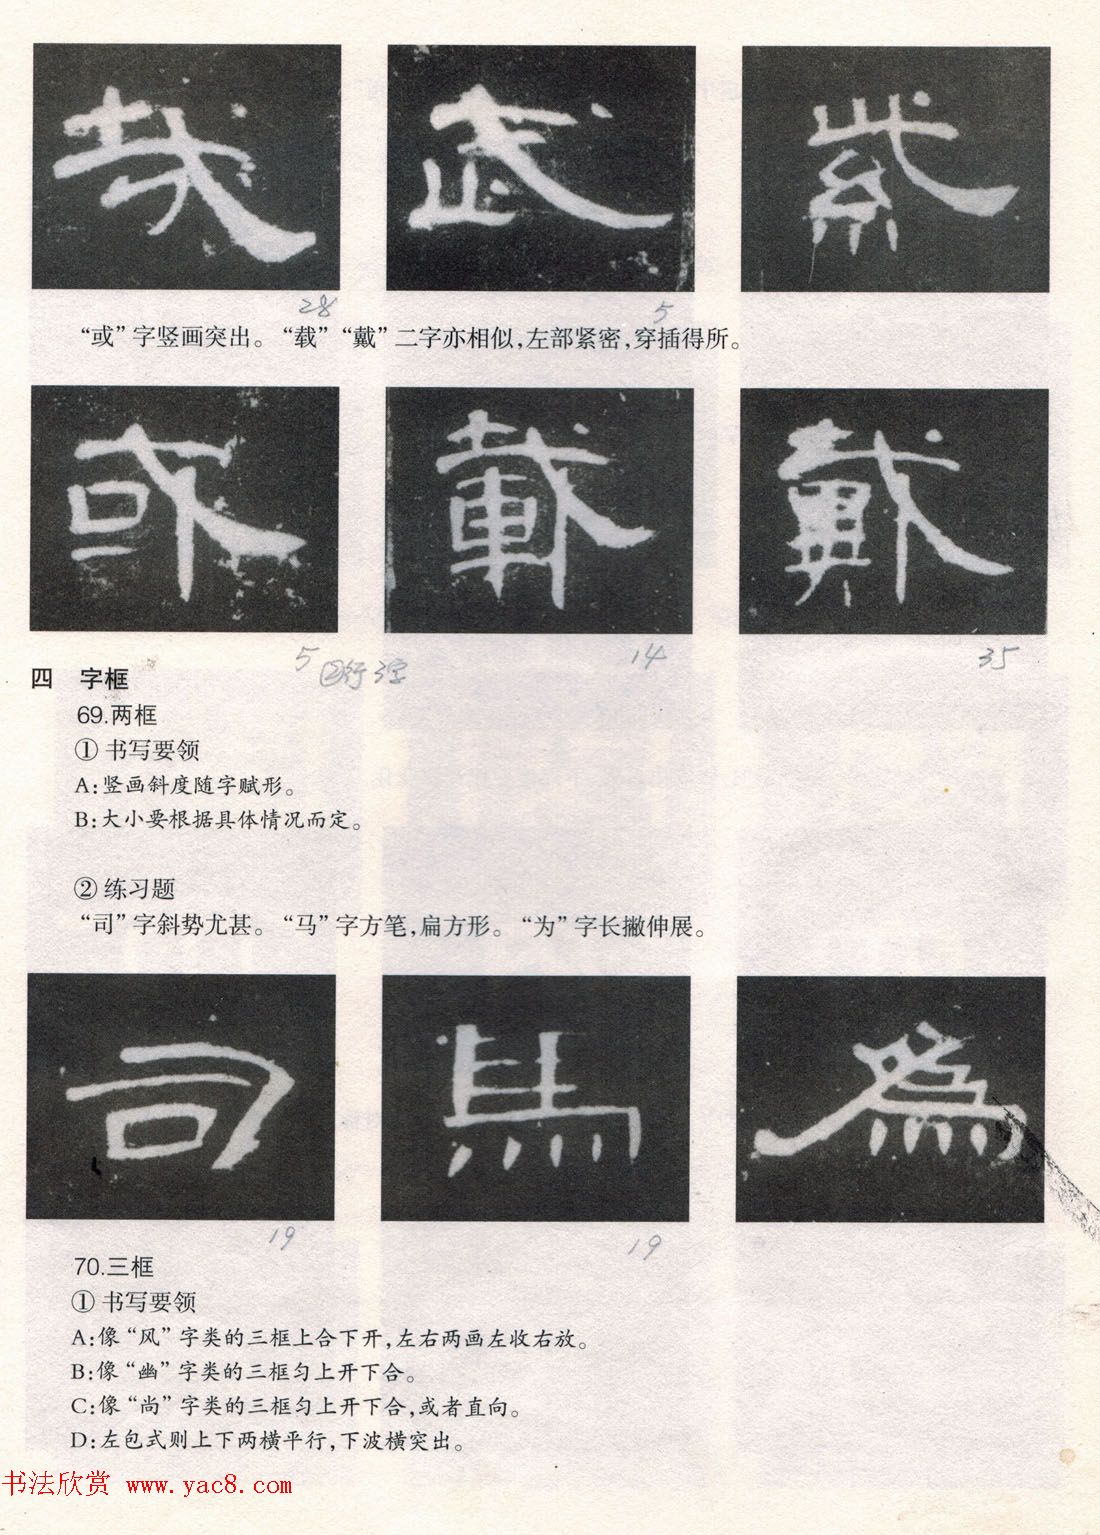 28
5
“或”字竖画突出。“载”“戴”二字亦相似,左部紧密,穿插得所。
或 載 戴
5 ②行3字 14 35
四 字框
69.两框
① 书写要领
A:竖画斜度随字赋形。
B:大小要根据具体情况而定。
② 练习题
“司”字斜势尤甚。“马”字方笔,扁方形。“为”字长撇伸展。
司 馬 為
19 19
70.三框
① 书写要领
A:像“风”字类的三框上合下开,左右两画左收右放。
B:像“幽”字类的三框匀上开下合。
C:像“尚”字类的三框匀上开下合,或者直向。
D:左包式则上下两横平行,下波横突出。
书法欣赏 www.yac8.com